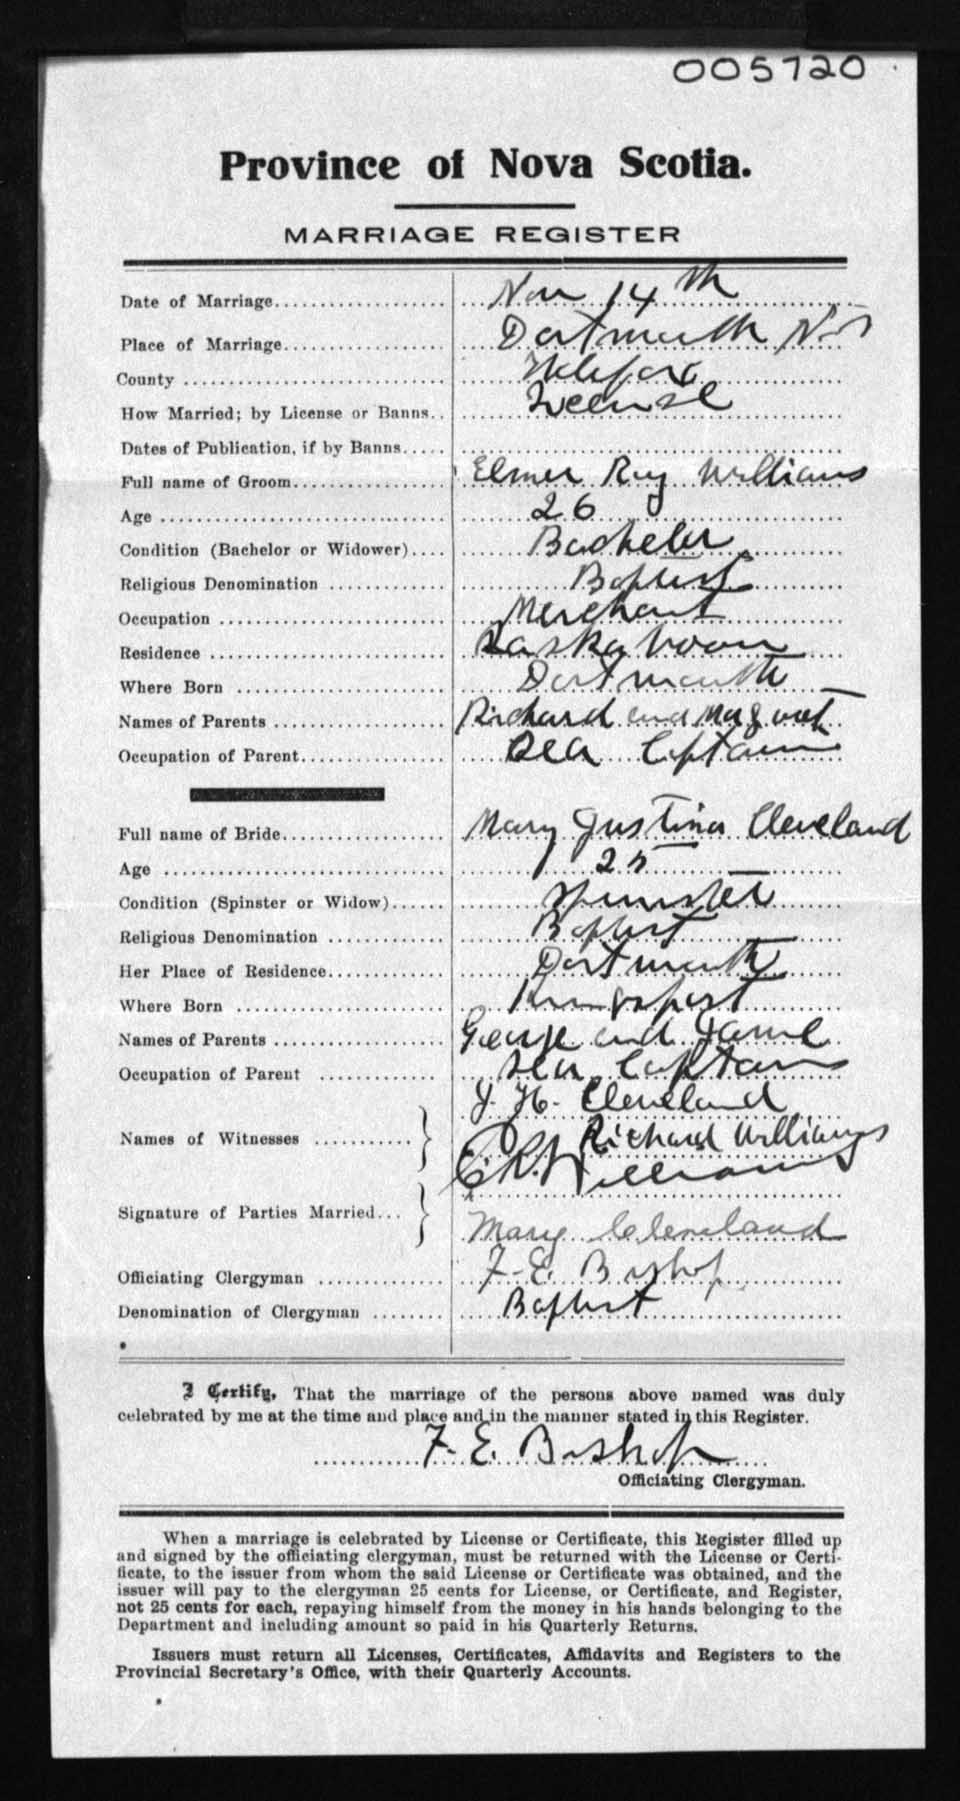 005720
Province of Nova Scotia.
MARRIAGE REGISTER
Date of Marriage Nov 14th
Place of Marriage Dartmouth N.S
County Halifax
How Married; by License or Banns License
Dates of Publication, if by Banns
Full name of Groom Elmer Roy Williams
Age 26
Condition (Bachelor or Widower) Bachelor
Religious Denomination Baptist
Occupation Merchant
Residence Saskatoon
Where Born Dartmouth
Names of Parents Richard and Margaret
Occupation of Parent Sea Captain
Full name of Bride Mary Justina Cleveland
Age 25
Condition (Spinster or Widow) Spinster
Religious Denomination Baptist
Her Place of Residence Dartmouth
Where Born Kingsport
Names of Parents George and Jane
Occupation of Parent Sea Captain
J. H. Cleveland
Names of Witnesses Richard Williams
E. R. Williams
Signature of Parties Married Mary Cleveland
Officiating Clergyman F. E. Bishop
Denomination of Clergyman Baptist
I Certify, That the marriage of the persons above named was duly
celebrated by me at the time and place and in the manner stated in this Register.
F. E. Bishop
Officiating Clergyman.
When a marriage is celebrated by License or Certificate, this Register filled up
and signed by the officiating clergyman, must be returned with the License or Certi-
ficate, to the issuer from whom the said License or Certificate was obtained, and the
issuer will pay to the clergyman 25 cents for License, or Certificate, and Register,
not 25 cents for each, repaying himself from the money in his hands belonging to the
Department and including amount so paid in his Quarterly Returns.
Issuers must return all Licenses, Certificates, Affidavits and Registers to the
Provincial Secretary's Office, with their Quarterly Accounts.